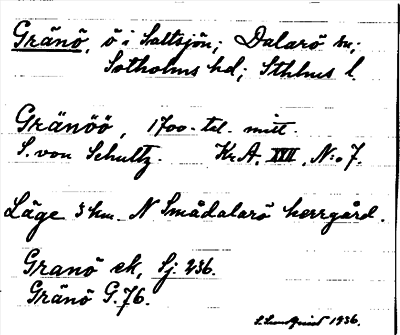 Gränö, ö i Saltsjön; Dalarö sn;
Sotholms hd; Sthlms l.
Gränöö, 1700-tal. mitt.
S. von Schultz. Kr.A. XVII, N:o 7.
Läge 3 km N Smådalarö herrgård.
Granö ek, Sj. 236.
Gränö G. 76.
S. Lundqvist 1936.